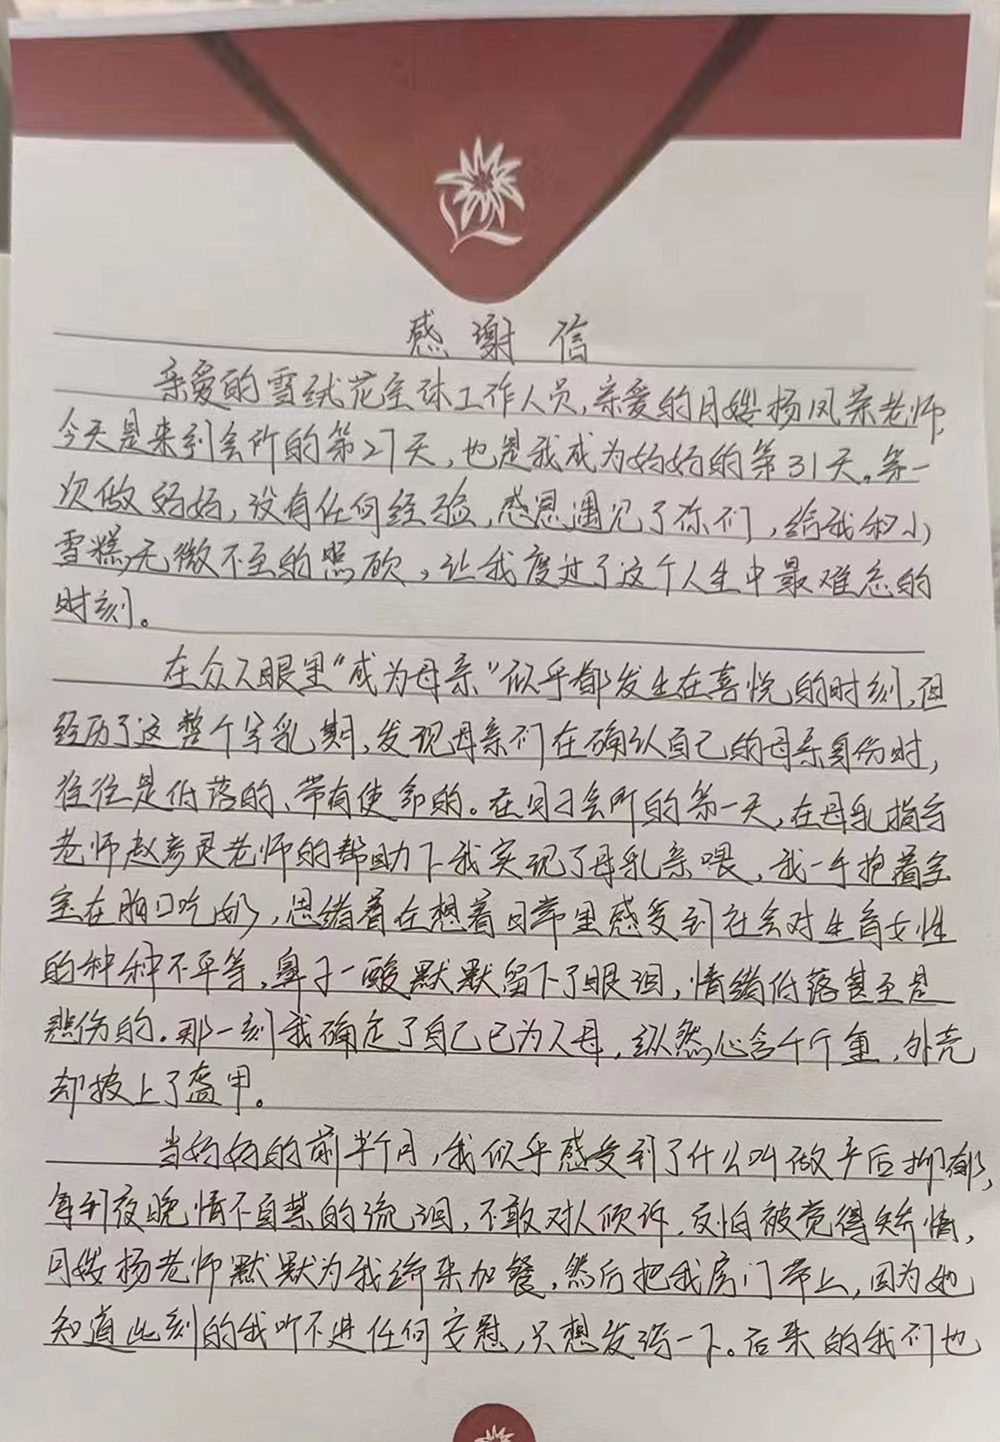 感谢信
亲爱的雪绒花全体工作人员,亲爱的月嫂杨凤荣老师,
今天是来到会所的第27天,也是我成为妈妈的第31天。第一
次做妈妈,没有任何经验,感恩遇见了你们,给我和小
雪糕无微不至的照顾,让我度过了这个人生中最难忘的
时刻。
在众人眼里“成为母亲”似乎都发生在喜悦的时刻,但
经历了这整个孕乳期,发现母亲们在确认自己的母亲身份时,
往往是低落的、带有使命的。在月子会所的第一天,在母乳指导
老师赵彦灵老师的帮助下我实现了母乳亲喂,我一手抱着宝
宝在胸口吃奶,思绪着在想着日常里感受到社会对生育女性
的种种不平等,鼻子一酸默默留下了眼泪,情绪低落甚至是
悲伤的。那一刻我确定了自己已为人母,纵然心含千斤重,外壳
却披上了盔甲。
当妈妈的前半个月,我似乎感受到了什么叫做产后抑郁,
每到夜晚情不自禁的流泪,不敢对人倾诉,反怕被觉得矫情,
月嫂杨老师默默为我端来加餐,然后把我房门带上,因为她
知道此刻的我听不进任何安慰,只想发泄一下。后来的我们也